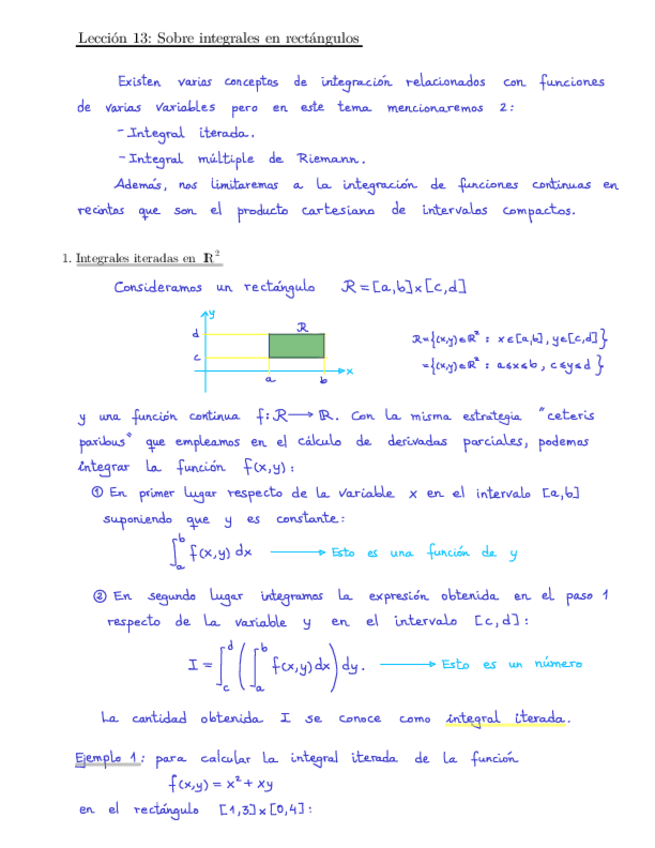 Lección 13: Sobre integrales en rectángulos
Existen varios conceptos de integración relacionados con funciones
de varias variables pero en este tema mencionaremos 2:
- Integral iterada.
- Integral múltiple de Riemann.
Además, nos limitaremos a la integración de funciones continuas en
recintos que son el producto cartesiano de intervalos compactos.
1. Integrales iteradas en R²
Consideramos un rectángulo R=[a,b]x[c,d]
y
d
R
c
a
b
x
R={(x,y)∈R² : x∈[a,b], y∈[c,d]}
={(x,y)∈R² : a≤x≤b, c≤y≤d}
y una función continua f:R→R. Con la misma estrategia "ceteris
paribus" que empleamos en el cálculo de derivadas parciales, podemos
integrar la función f(x,y):
① En primer lugar respecto de la variable x en el intervalo [a,b]
suponiendo que y es constante:
∫_a^b f(x,y) dx → Esto es una función de y
② En segundo lugar integramos la expresión obtenida en el paso 1
respecto de la variable y en el intervalo [c,d]:
I = ∫_c^d (∫_a^b f(x,y) dx) dy. → Esto es un número
La cantidad obtenida I se conoce como integral iterada.
Ejemplo 1: para calcular la integral iterada de la función
f(x,y) = x² + xy
en el rectángulo [1,3]x[0,4]: